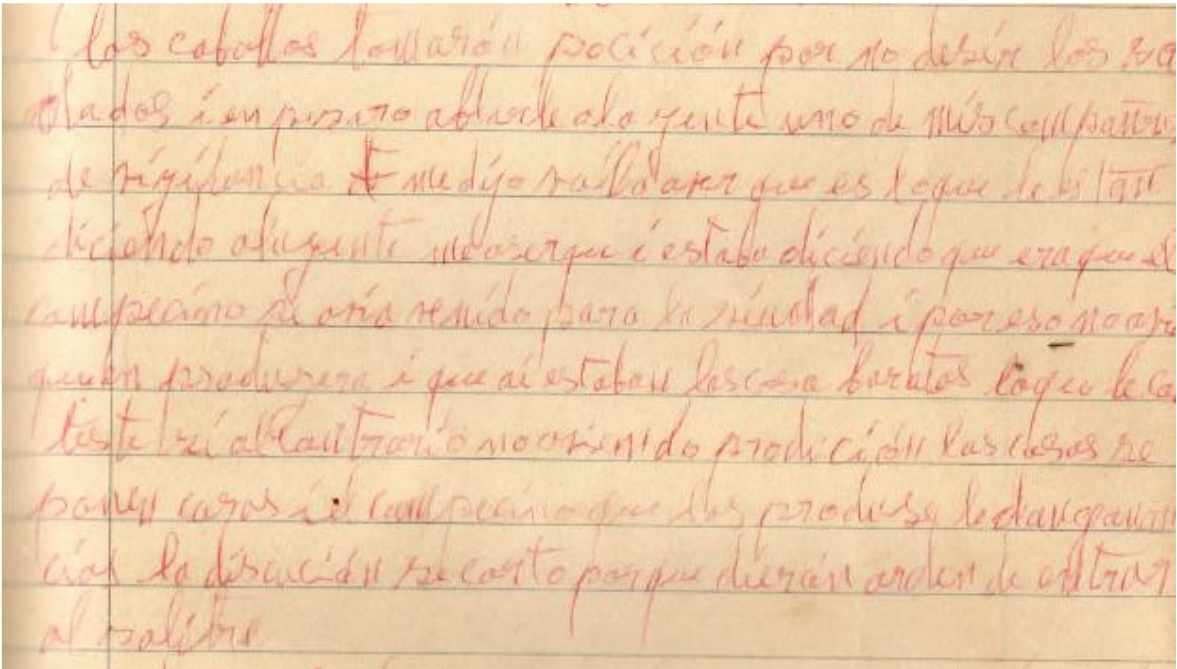 los caballos tomarón pocición por no desir los so
olados i enpesaro ablarle ala gente uno de mis compañero
de vigilancia me dijo valla aver que es loque le es tan
diciendo ala gente me aserque i estaba diciendo que era que el
campecino se avia venido para la siudad i por eso no avi
quien produsera i que ai estaban las cosa baratas loque le co
teste si al contrario no aviendo produción las cosas se
ponen caras i el campecino que las produse le dan ganan
cias la discución se corto porque dierón orden de entrar
al salitre